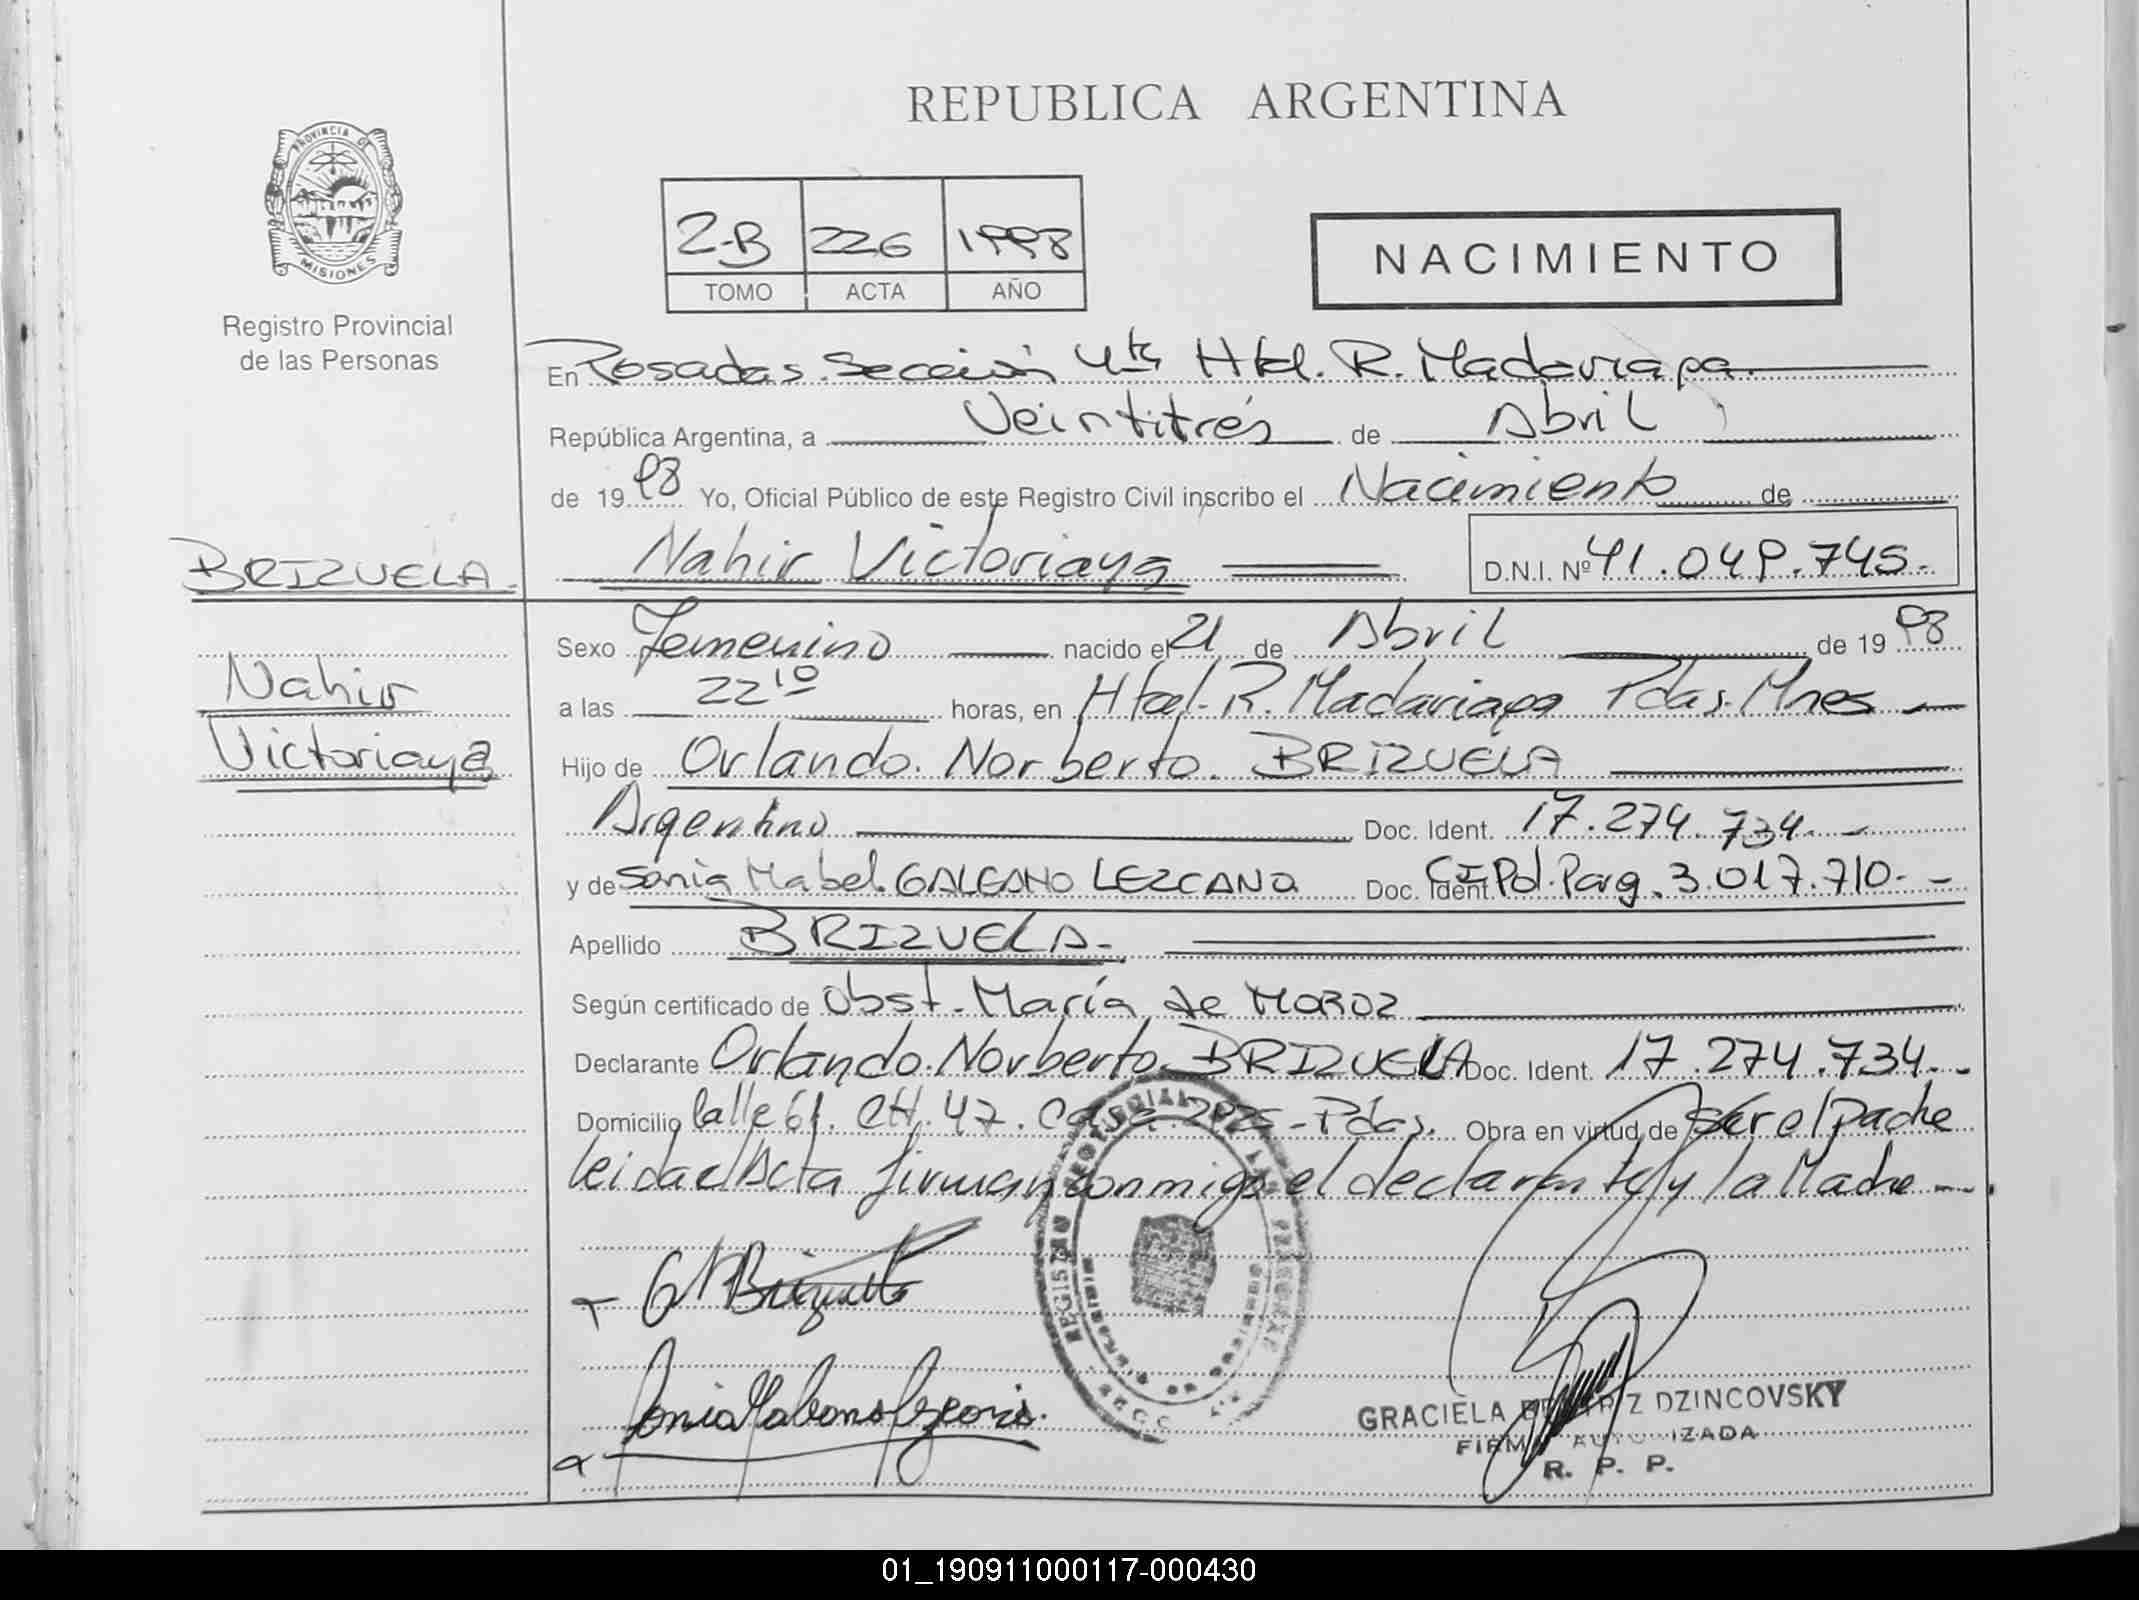 REPUBLICA ARGENTINA
PROVINCIA DE
MISIONES
Registro Provincial
de las Personas
2-B 226 1998
TOMO ACTA AÑO
NACIMIENTO
En Posadas. Sección 4ta Htal. R. Madariaga.
República Argentina, a Veintitrés de Abril
de 19 98 Yo, Oficial Público de este Registro Civil inscribo el Nacimiento de
BRIZUELA.
Nahir Victoriaya D.N.I. Nº 41.049.745.-
Nahir
Victoriaya
Sexo Femenino nacido el 21 de Abril de 19 98
a las 22 10 horas, en Htal. R. Madariaga Pdas. Mnes
Hijo de Orlando. Norberto. BRIZUELA
Argentino Doc. Ident. 17.274.734.-
y de Sonia Mabel. GALEANO LEZCANO Doc. Ident. CI Pol. Parg. 3.017.710.-
Apellido BRIZUELA.-
Según certificado de Obst. María de MOROZ
Declarante Orlando. Norberto BRIZUELA Doc. Ident. 17.274.734.-
Domicilio Calle 61. CH. 47. Casa -Pdas. Obra en virtud de Ser el Padre
leida el Acta firman conmigo el declarante y la Madre
GRACIELA BEATRIZ DZINCOVSKY
FIRMA AUTORIZADA
R. P. P.
01_190911000117-000430